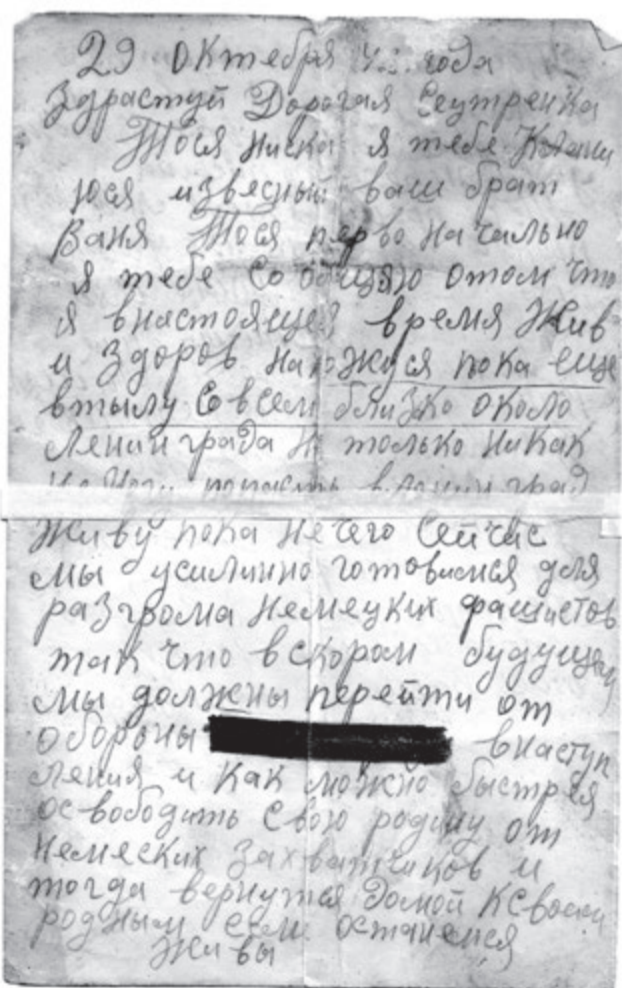 29 Октебря 42 года
Здрастуй Дорогая Сеутренка
Тося ниска я тебе Клани
юся извесный ваш брат
Ваня Тося перво начально
я тебе Сообщяю отом что
я внастоящея время Жив
и Здоров нахожуся пока еще
втылу Совсем близко около
Ленинграда Н только никак
немогу попасть вленинград
Живу пока нечего Сейчас
мы усилично готовимся для
разгрома Немецких фашистов
так что вскором будущем
мы должны перейти от
обороны внаступ
ления и как можно быстрея
освободить Свою родину от
Немеских захватчиков и
тогда вернутся Домой Ксвоим
родным если останемся
Живы